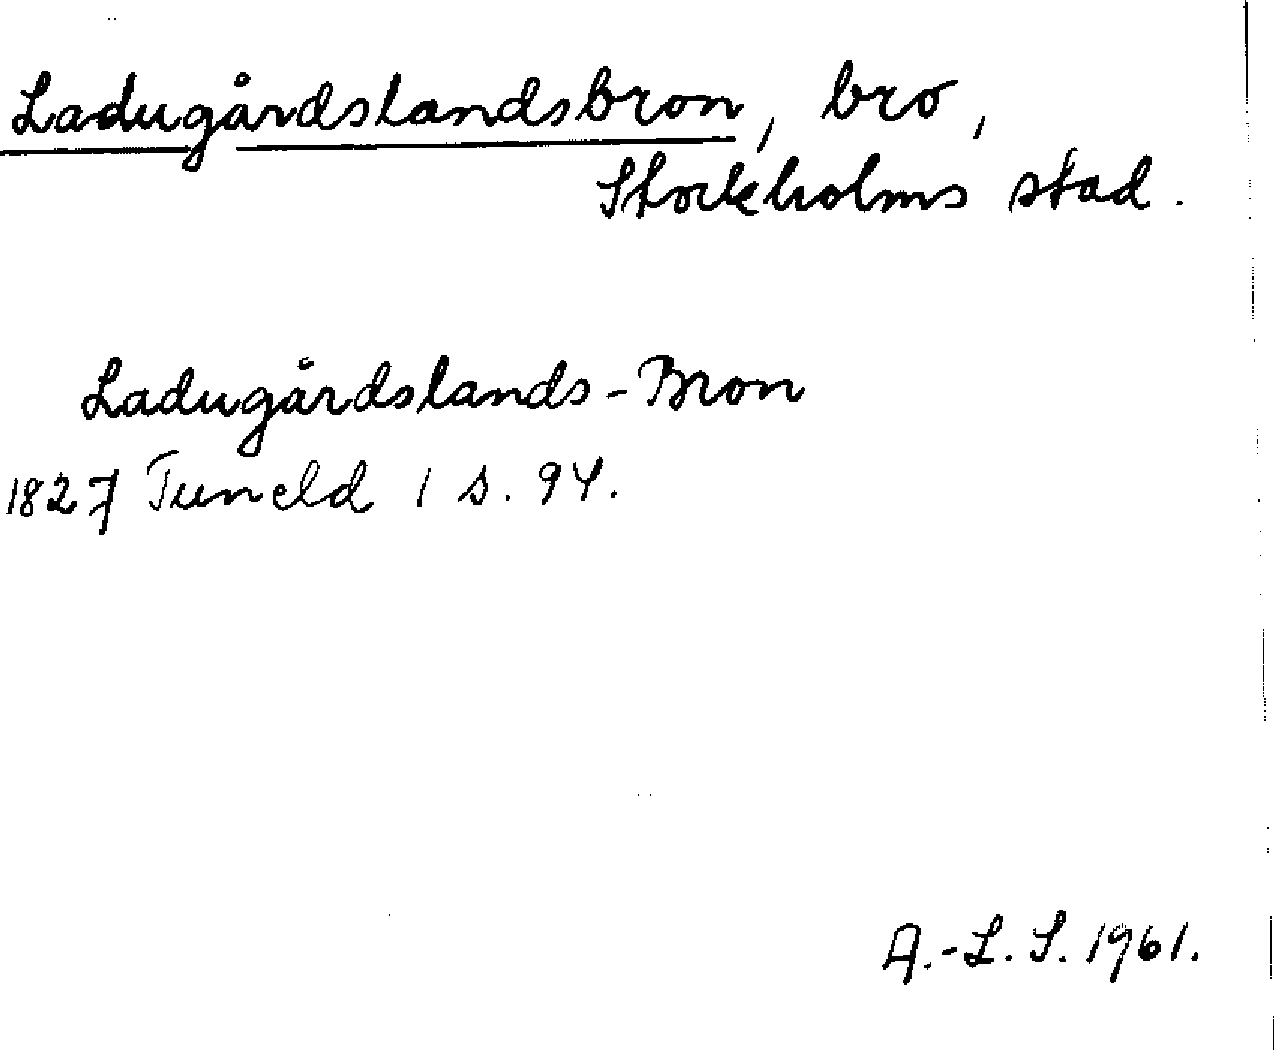 Ladugårdslandsbron, bro,
Stockholms stad.
Ladugårdslands-Bron
1827 Tuneld 1 s. 94.
A.-L. S. 1961.